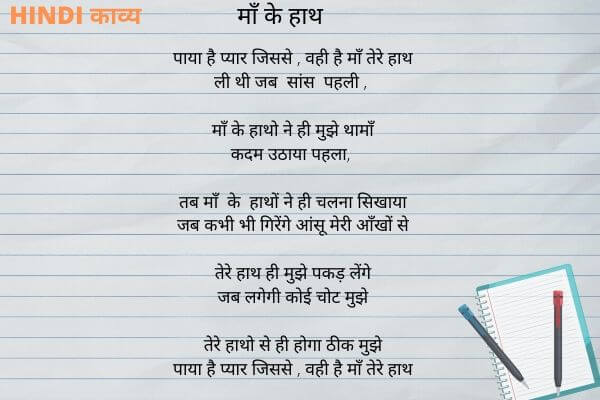 HINDI काव्य
माँ के हाथ
पाया है प्यार जिससे , वही है माँ तेरे हाथ
ली थी जब सांस पहली ,
माँ के हाथो ने ही मुझे थामाँ
कदम उठाया पहला,
तब माँ के हाथों ने ही चलना सिखाया
जब कभी भी गिरेंगे आंसू मेरी आँखों से
तेरे हाथ ही मुझे पकड़ लेंगे
जब लगेगी कोई चोट मुझे
तेरे हाथो से ही होगा ठीक मुझे
पाया है प्यार जिससे , वही है माँ तेरे हाथ